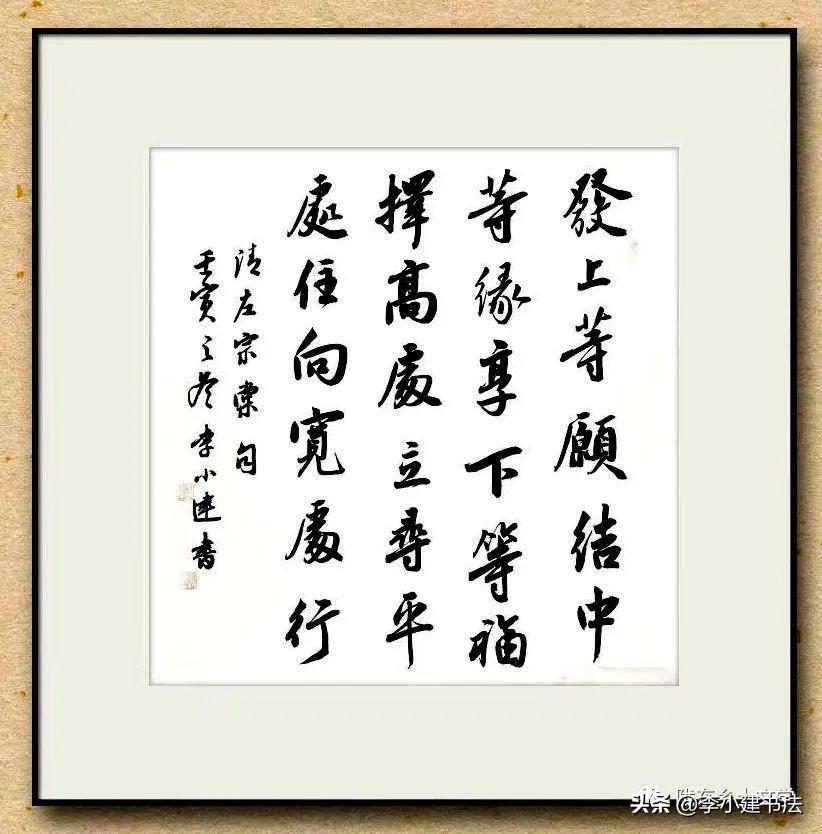 發上等願結中
等緣享下等福
擇高處立尋平
處住向寬處行
清左宗棠句
壬寅之冬李小建書
头条@李小建书法